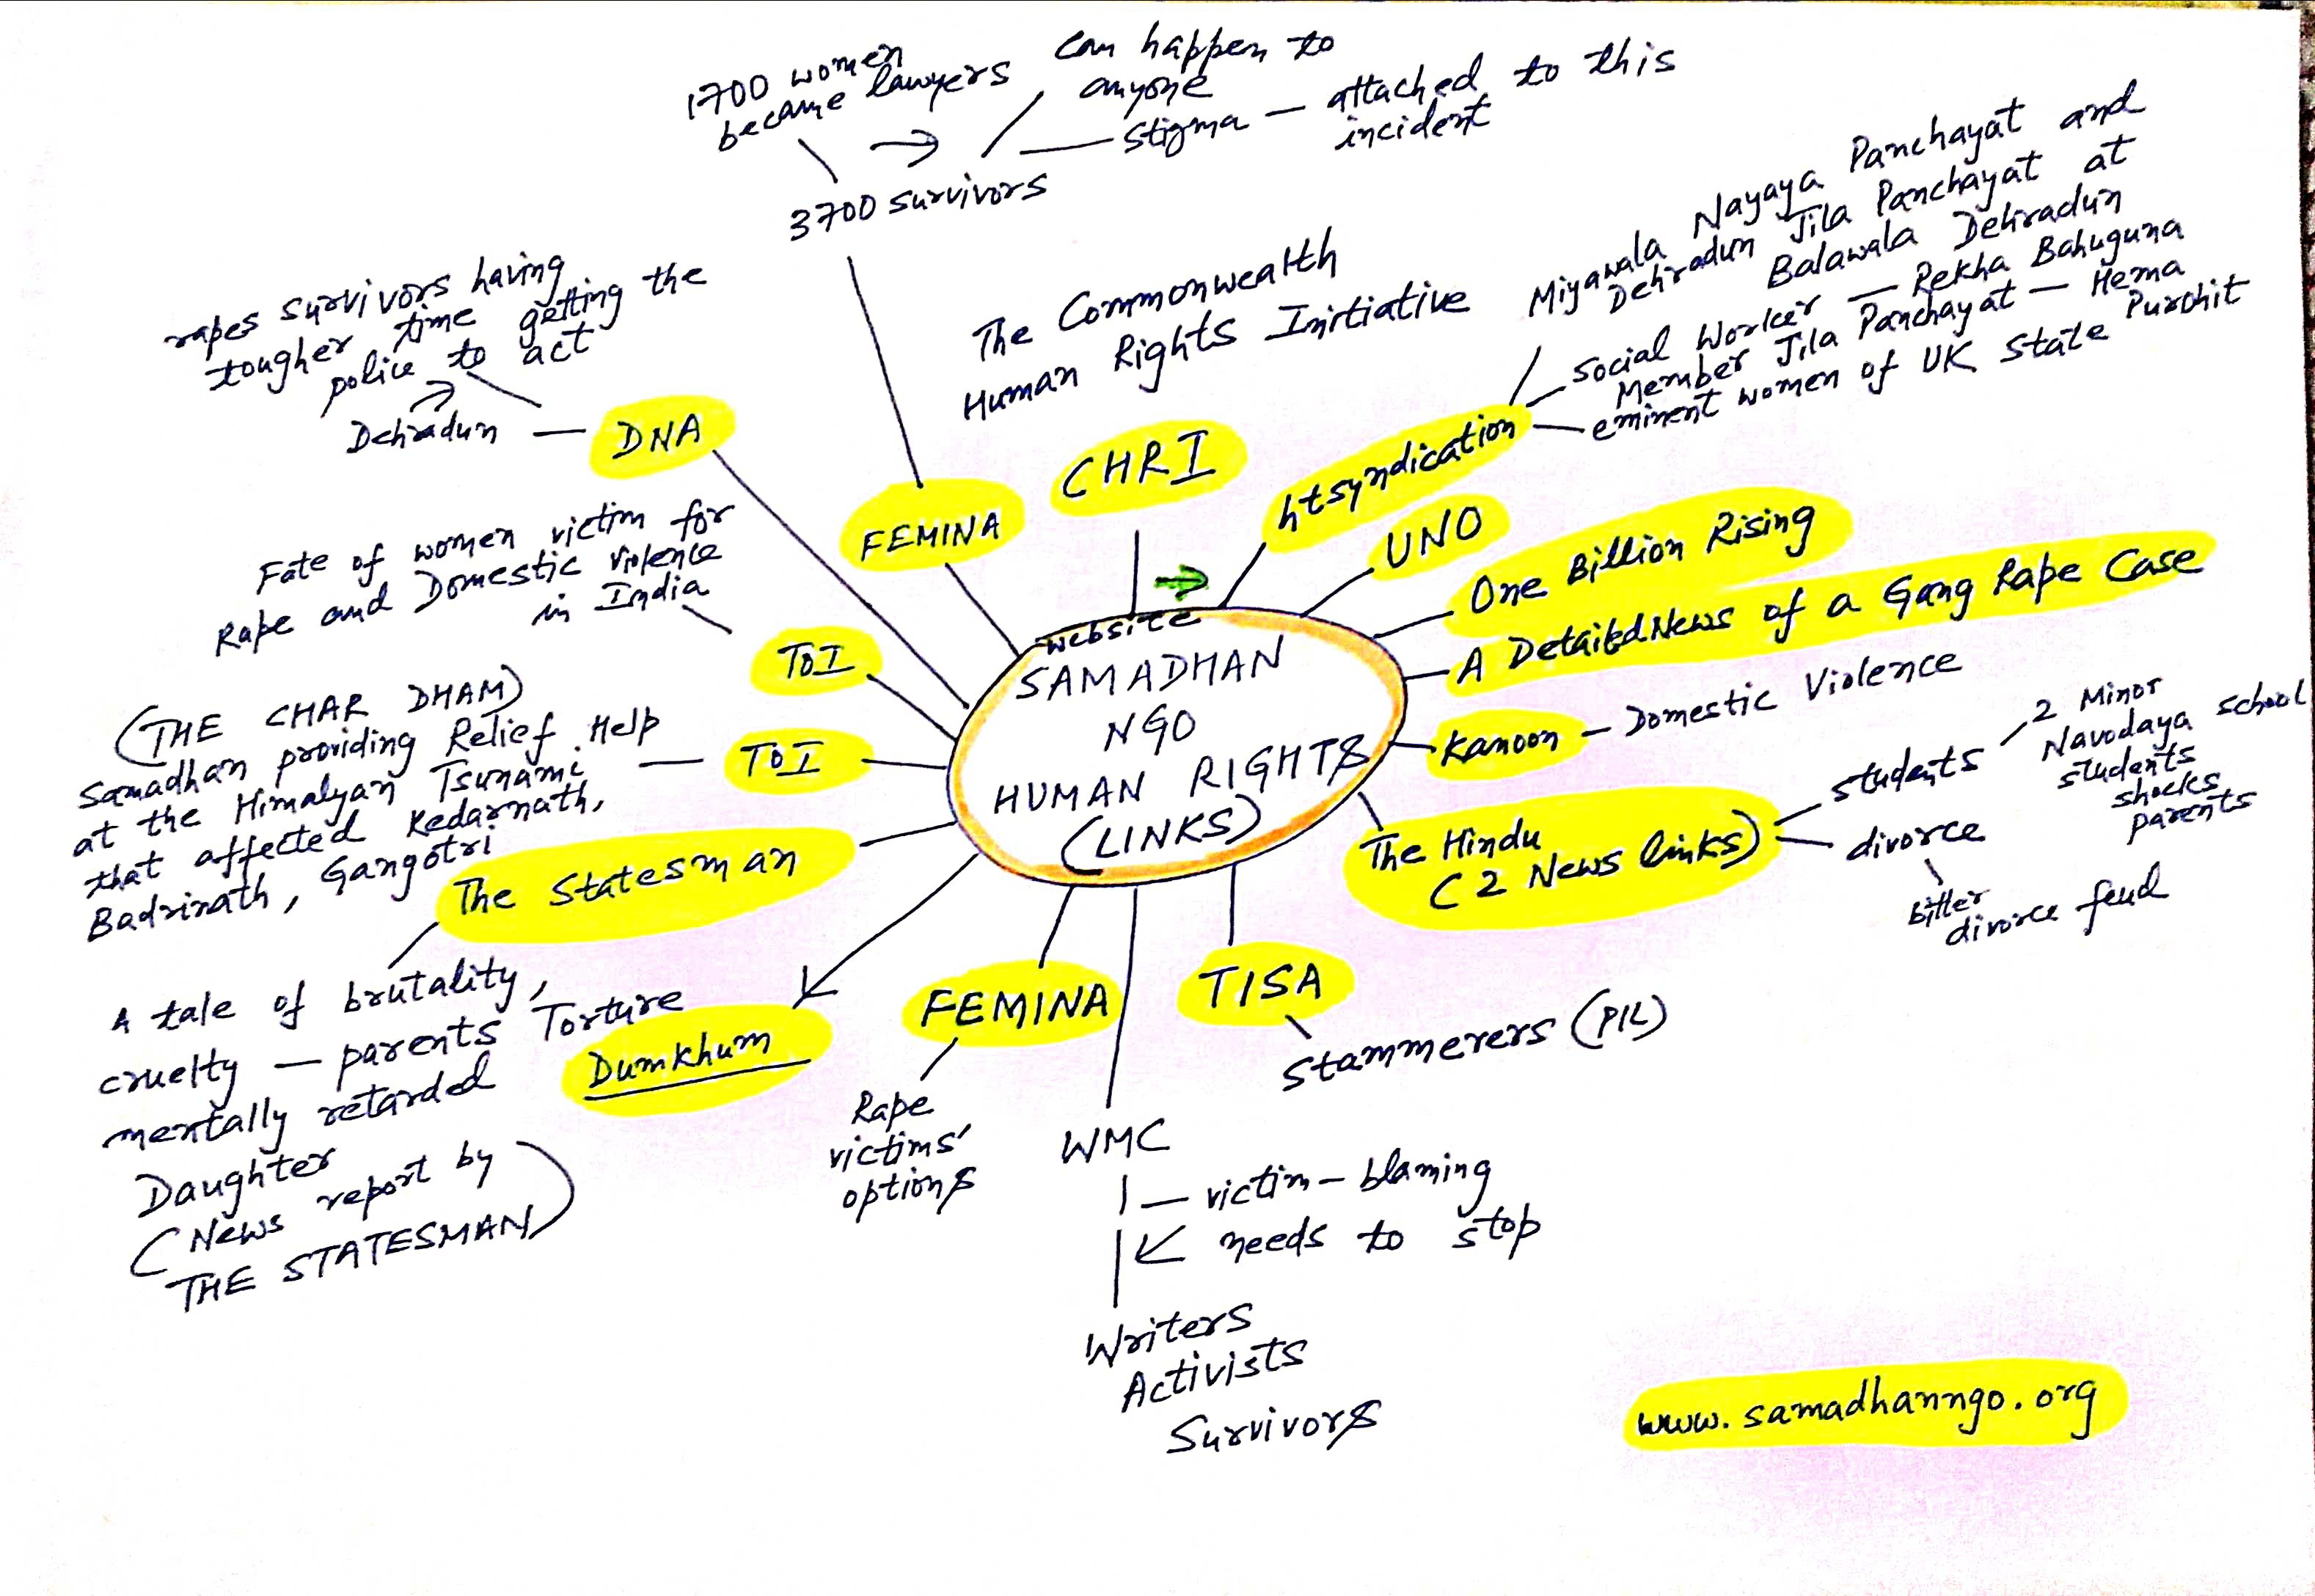 1700 women
became lawyers
can happen to
anyone
stigma — attached to this
incident
3700 survivors
FEMINA
The Commonwealth
Human Rights Initiative
CHRI
Miyawala Nayaya Panchayat and
Dehradun Jila Panchayat at
Balawala Dehradun
social Worker — Rekha Bahuguna
Member Jila Panchayat — Hema
Purohit
eminent women of UK State
htsyndication
UNO
One Billion Rising
A Detailed News of a Gang Rape Case
Kanoon — Domestic Violence
The Hindu
(2 News links)
students
2 Minor
Navodaya school
students
shocks
parents
divorce
bitter
divorce feud
TISA
stammerers (PIL)
WMC
victim-blaming
needs to stop
Writers
Activists
Survivors
FEMINA
Rape
victims'
options
Dumkhum
The Statesman
A tale of brutality,
cruelty — parents Torture
mentally retarded
Daughter
(News report by
THE STATESMAN)
ToI
(THE CHAR DHAM)
Samadhan providing Relief Help
at the Himalyan Tsunami
that affected Kedarnath,
Badrinath, Gangotri
ToI
Fate of women victim for
Rape and Domestic violence
in India
DNA
Dehradun
rapes survivors having
tougher time getting the
police to act
website
SAMADHAN
NGO
HUMAN RIGHTS
(LINKS)
www.samadhanngo.org